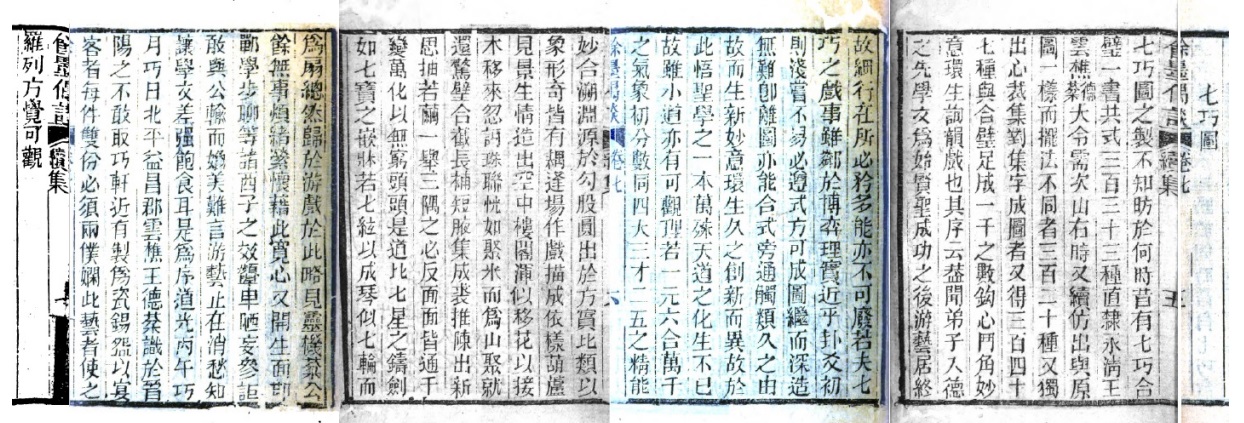 七巧圖
七巧圖之製不知昉於何時昔有七巧合
璧一書共式二百三十三種直隸永淸王
雲樵德棻大令需次山右時又續仿出與原
圖一樣而擺法不同者三百二十種又獨
出心裁集對集字成圖者又得三百四十
七種與合璧足成一千之數鈎心鬥角妙
意環生詢韻戲也其序云葢聞弟子入德
之先學文爲始賢聖成功之後游藝居終
餘墨偶談 卷七 續集 五
故細行在所必矜多能亦不可廢若夫七
巧之戲事雖鄰於博弈理實近乎卦爻初
則淺嘗不易必遵式方可成圖繼而深造
無難卽離圖亦能合式旁通觸類久之由
故而生新妙意環生久之創新而異故於
此悟聖學之一本萬殊天道之化生不已
故雖小道亦有可觀理若一元六合萬千
之氣象初分數同四大三才二五之精能
餘墨偶談 卷七 六
妙合溯淵源於勾股圓出於方實比類以
象形奇皆有耦逢場作戲描成依樣葫蘆
見景生情造出空中樓閣渾似移花以接
木移來忽訝珠聯恍如聚米而爲山聚就
還驚璧合截長補短腋集成裘推陳出新
思抽若繭一舉三隅之必反面面皆通千
變萬化以無窮頭頭是道比七星之鑄劍
如七寶之嵌牀若七絃以成琴似七輪而
爲扇總然歸於游戲於此略見靈機棻公
餘無事煩緒縈懷藉此寬心又開生面卽
鄲學步聊等諸西子之效顰陋妄參詎
敢與公輸而媲美難言游藝止在消愁知
讓學文差强飽食耳是爲序道光丙午巧
月巧日北平益昌郡雲樵王德棻識於晉
陽之不敢取巧軒近有製爲瓷錫盤以宴
客者每件雙份必須兩僕嫻此藝者使之
餘墨偶談 續集
羅列方覺可觀